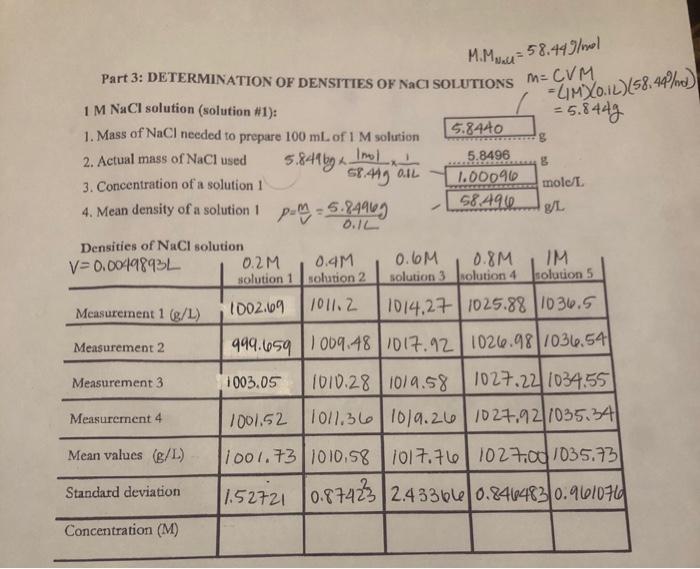 M.M NaCl = 58.44 g/mol
Part 3: DETERMINATION OF DENSITIES OF NaCl SOLUTIONS
m = CVM
= (1M)(0.1L)(58.44g/mol)
= 5.844g
1 M NaCl solution (solution #1):
1. Mass of NaCl needed to prepare 100 mL of 1 M solution 5.8440 g
2. Actual mass of NaCl used 5.8496g × 1mol/58.44g × 1/0.1L 5.8496 g
3. Concentration of a solution 1 1.00096 mole/L
4. Mean density of a solution 1 ρ = m/V = 5.8496g/0.1L 58.496 g/L
Densities of NaCl solution
V = 0.0049893L 0.2M 0.4M 0.6M 0.8M 1M
solution 1 solution 2 solution 3 solution 4 solution 5
Measurement 1 (g/L) 1002.69 1011.2 1014.27 1025.88 1036.5
Measurement 2 999.659 1009.48 1017.92 1026.98 1036.54
Measurement 3 1003.05 1010.28 1019.58 1027.22 1034.55
Measurement 4 1001.52 1011.36 1019.26 1027.92 1035.34
Mean values (g/L) 1001.73 1010.58 1017.76 1027.00 1035.73
Standard deviation 1.52721 0.87423 2.43366 0.846483 0.961076
Concentration (M)